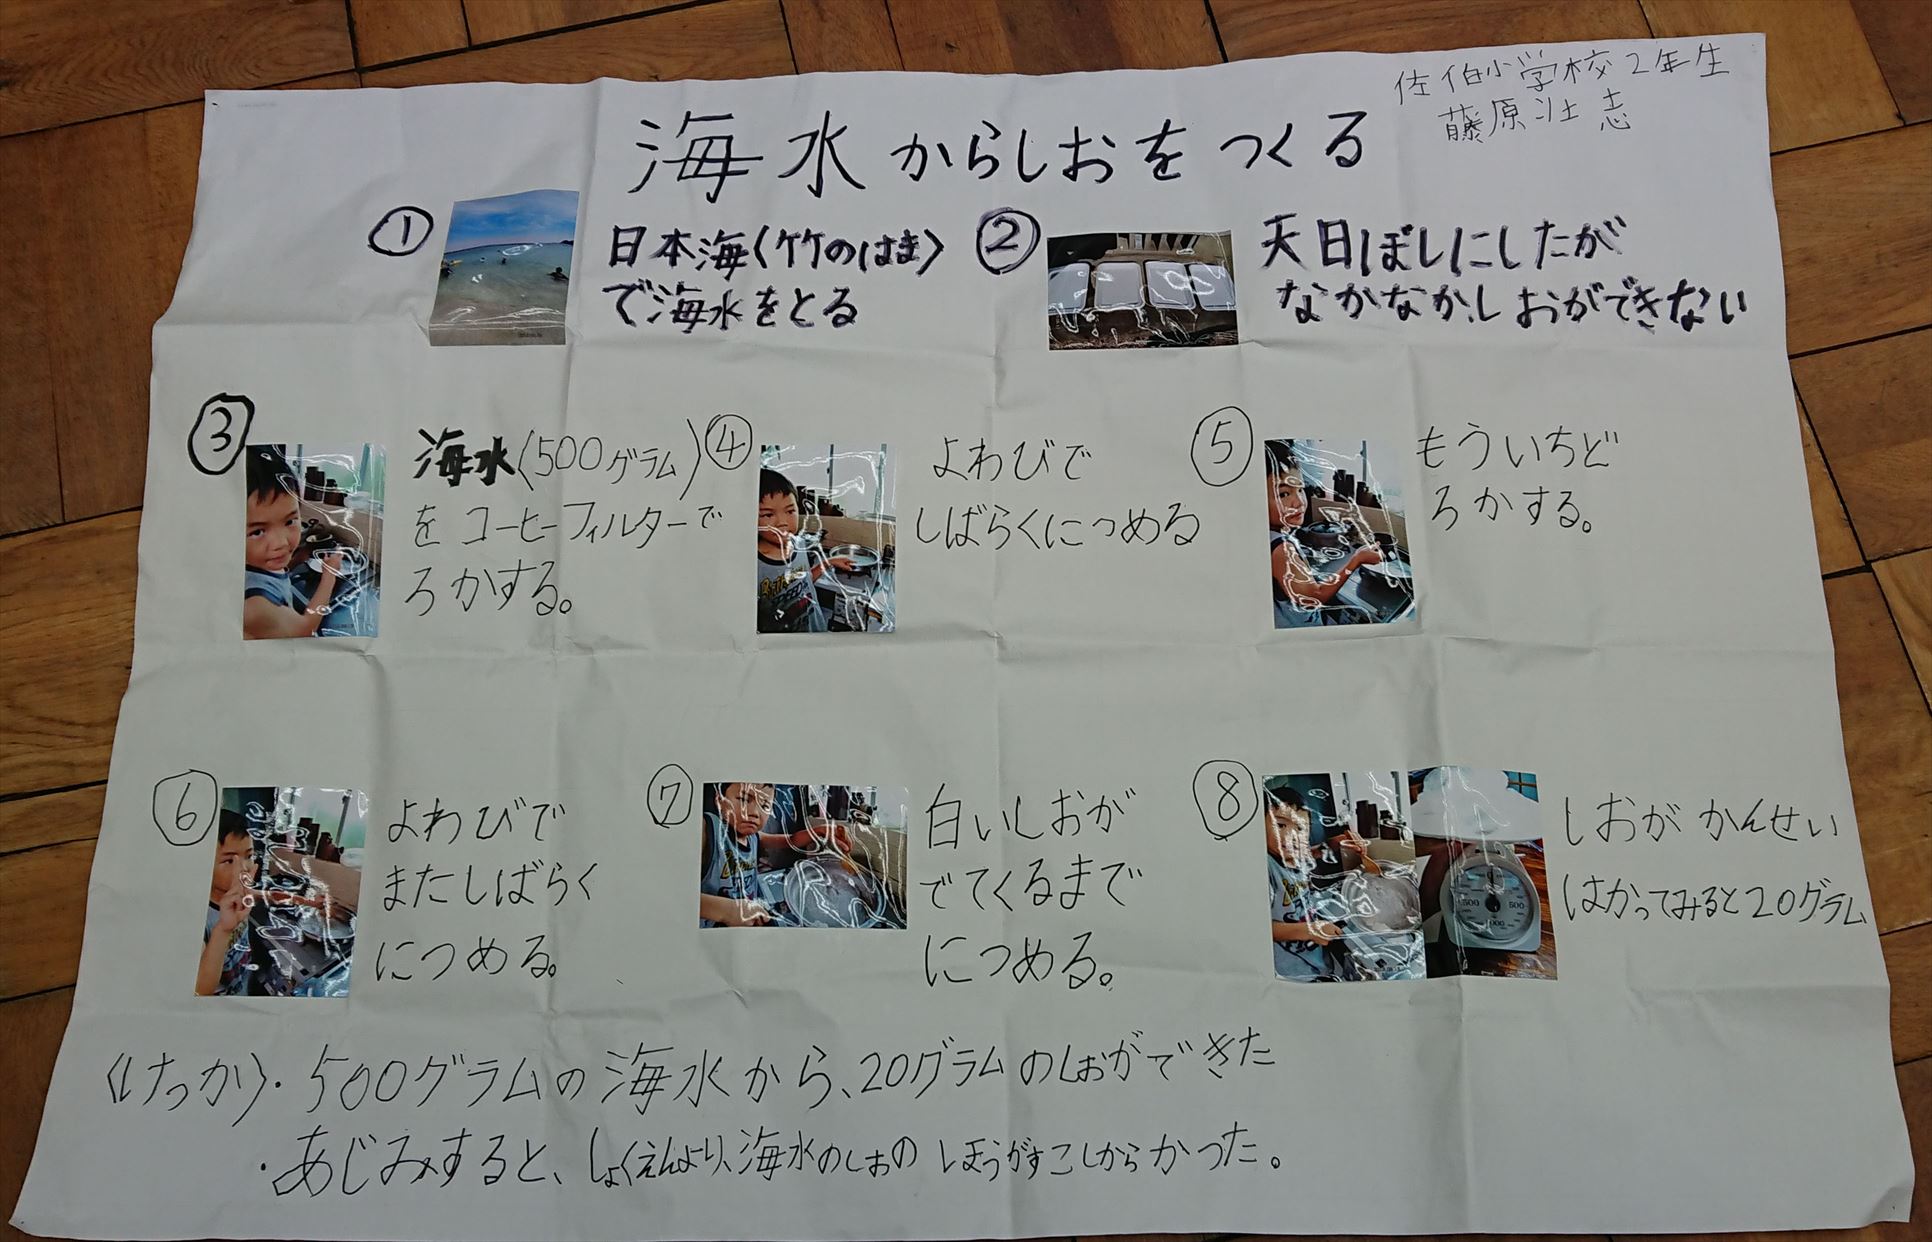 佐伯小学校2年生
藤原壮志
海水からしおをつくる
①
日本海〈竹のはま〉
で海水をとる
②
天日ぼしにしたが
なかなか、しおができない
③
海水〈500グラム〉
をコーヒーフィルターで
ろかする。
④
よわびで
しばらくにつめる
⑤
もういちど
ろかする。
⑥
よわびで
またしばらく
につめる。
⑦
白いしおが
でてくるまで
につめる。
⑧
しおがかんせい
はかってみると20グラム
500
500
1000
〈けっか〉・500グラムの海水から、20グラムのしおができた
・あじみすると、しょくえんより、海水のしおのほうがすこしからかった。